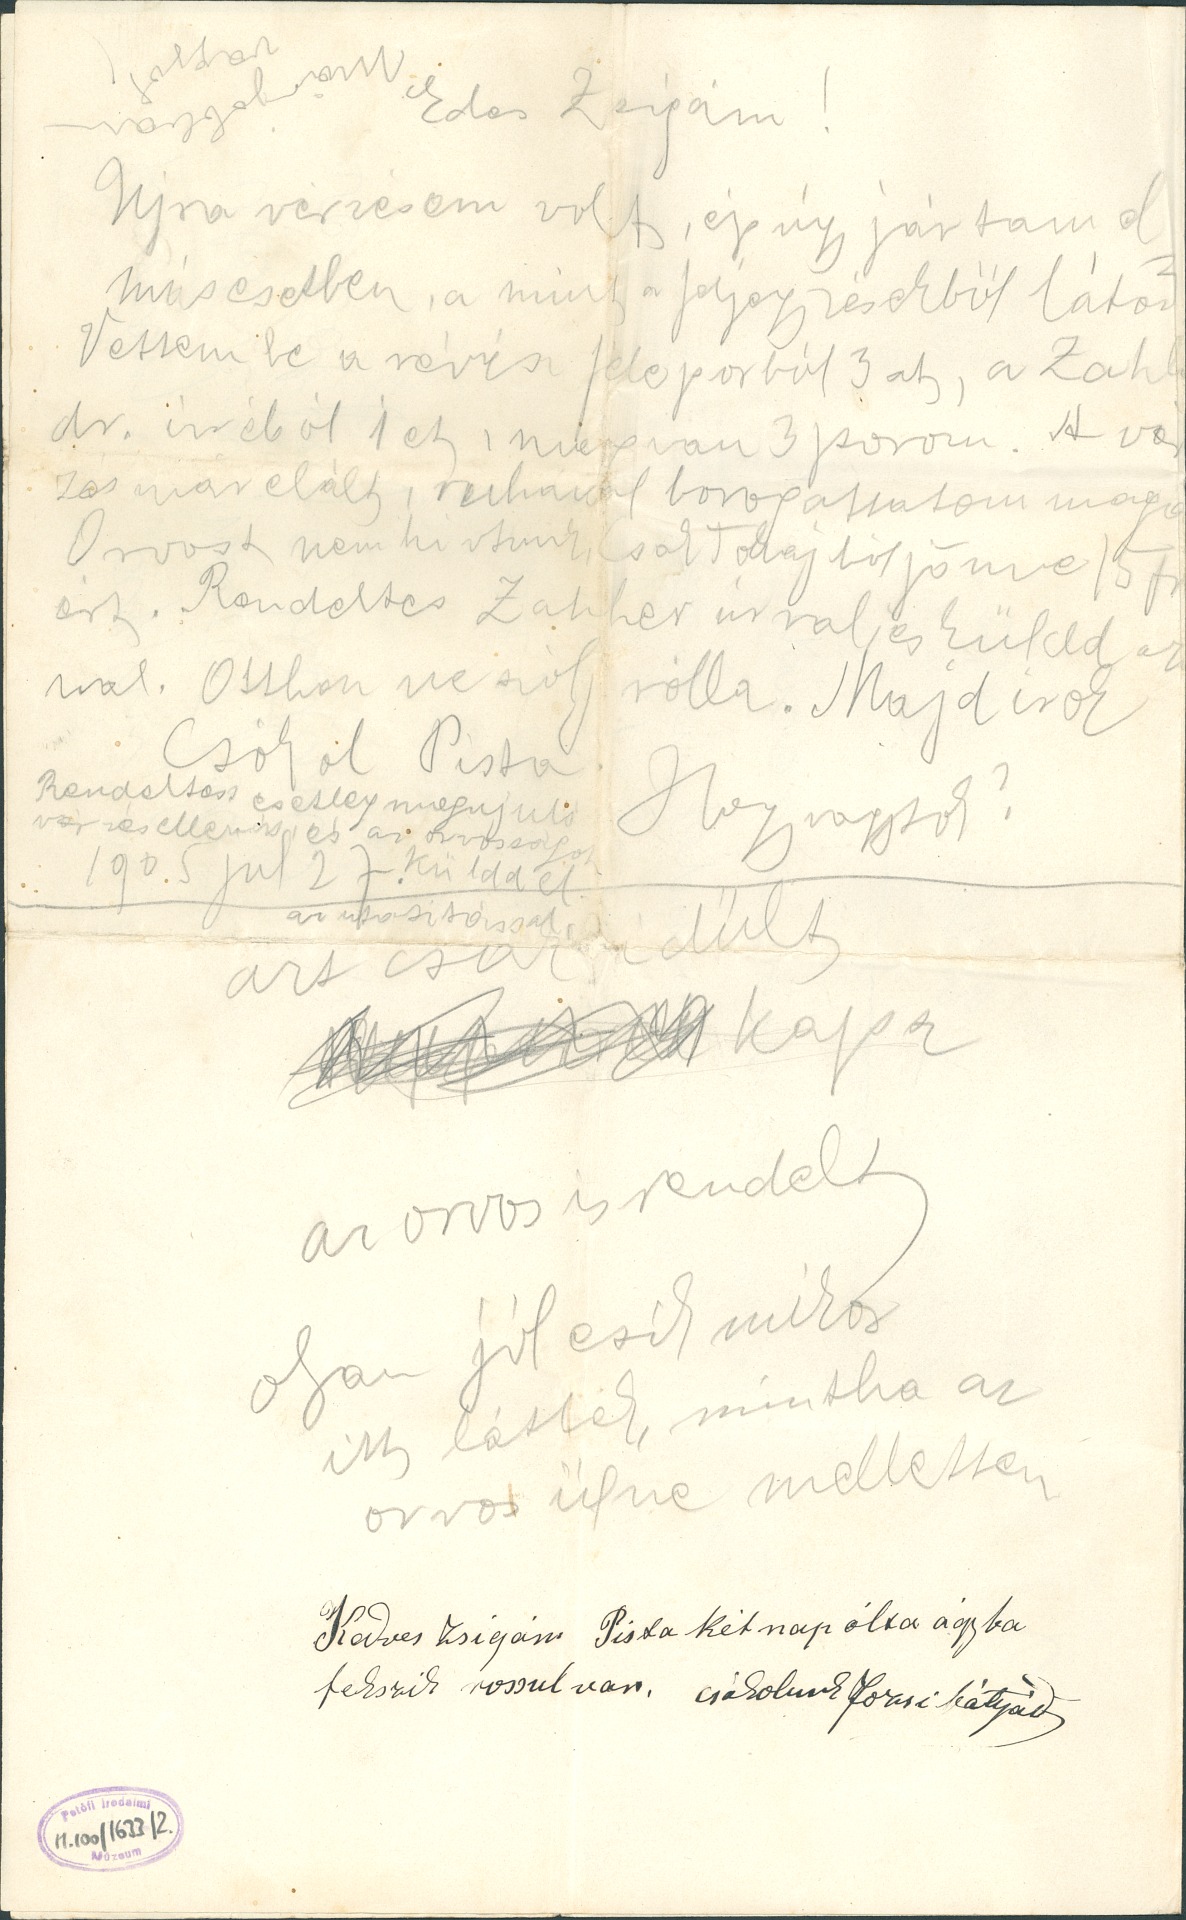 Már jobban
vagyok
Édes Zsigám!
Ujra vérzésem volt, épúgy jártam el
más esetben, a mint a följegyzésekből látom
Vettem be a révész féle porból 3 at, a Zahler
dr. úréból 1 et, még van 3 porom. A vér
zés már elált, ruhával borogattatom magam
Orvost nem hivtunk, csak Tokajból jönne 15 fr
ért. Rendeltes Zahler úrral, és küldd az
nal. Otthon ne szólj rólla. Majd irok
Csókol Pista
Hogy vagytok?
Rendeltess esetleg megujuló
vérzés ellen is és az orvosságot
1905 jul 27. küldd el
az utasitással.
azt csak idült
kapsz
az orvos is rendelt
olyan jól esik mikor
itt látlak, mintha az
orvos ülne mellettem
Kedves Zsigám Pista két nap ólta ágyba
fekszik rosszul van. csókolunk Jozsi bátyád
Petőfi Irodalmi
M.100/1633/2.
Múzeum